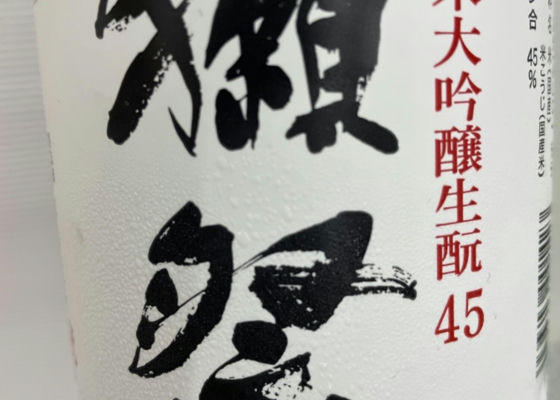 米こうじ(国産米)
合 45%
米大吟醸生酛45
獺祭